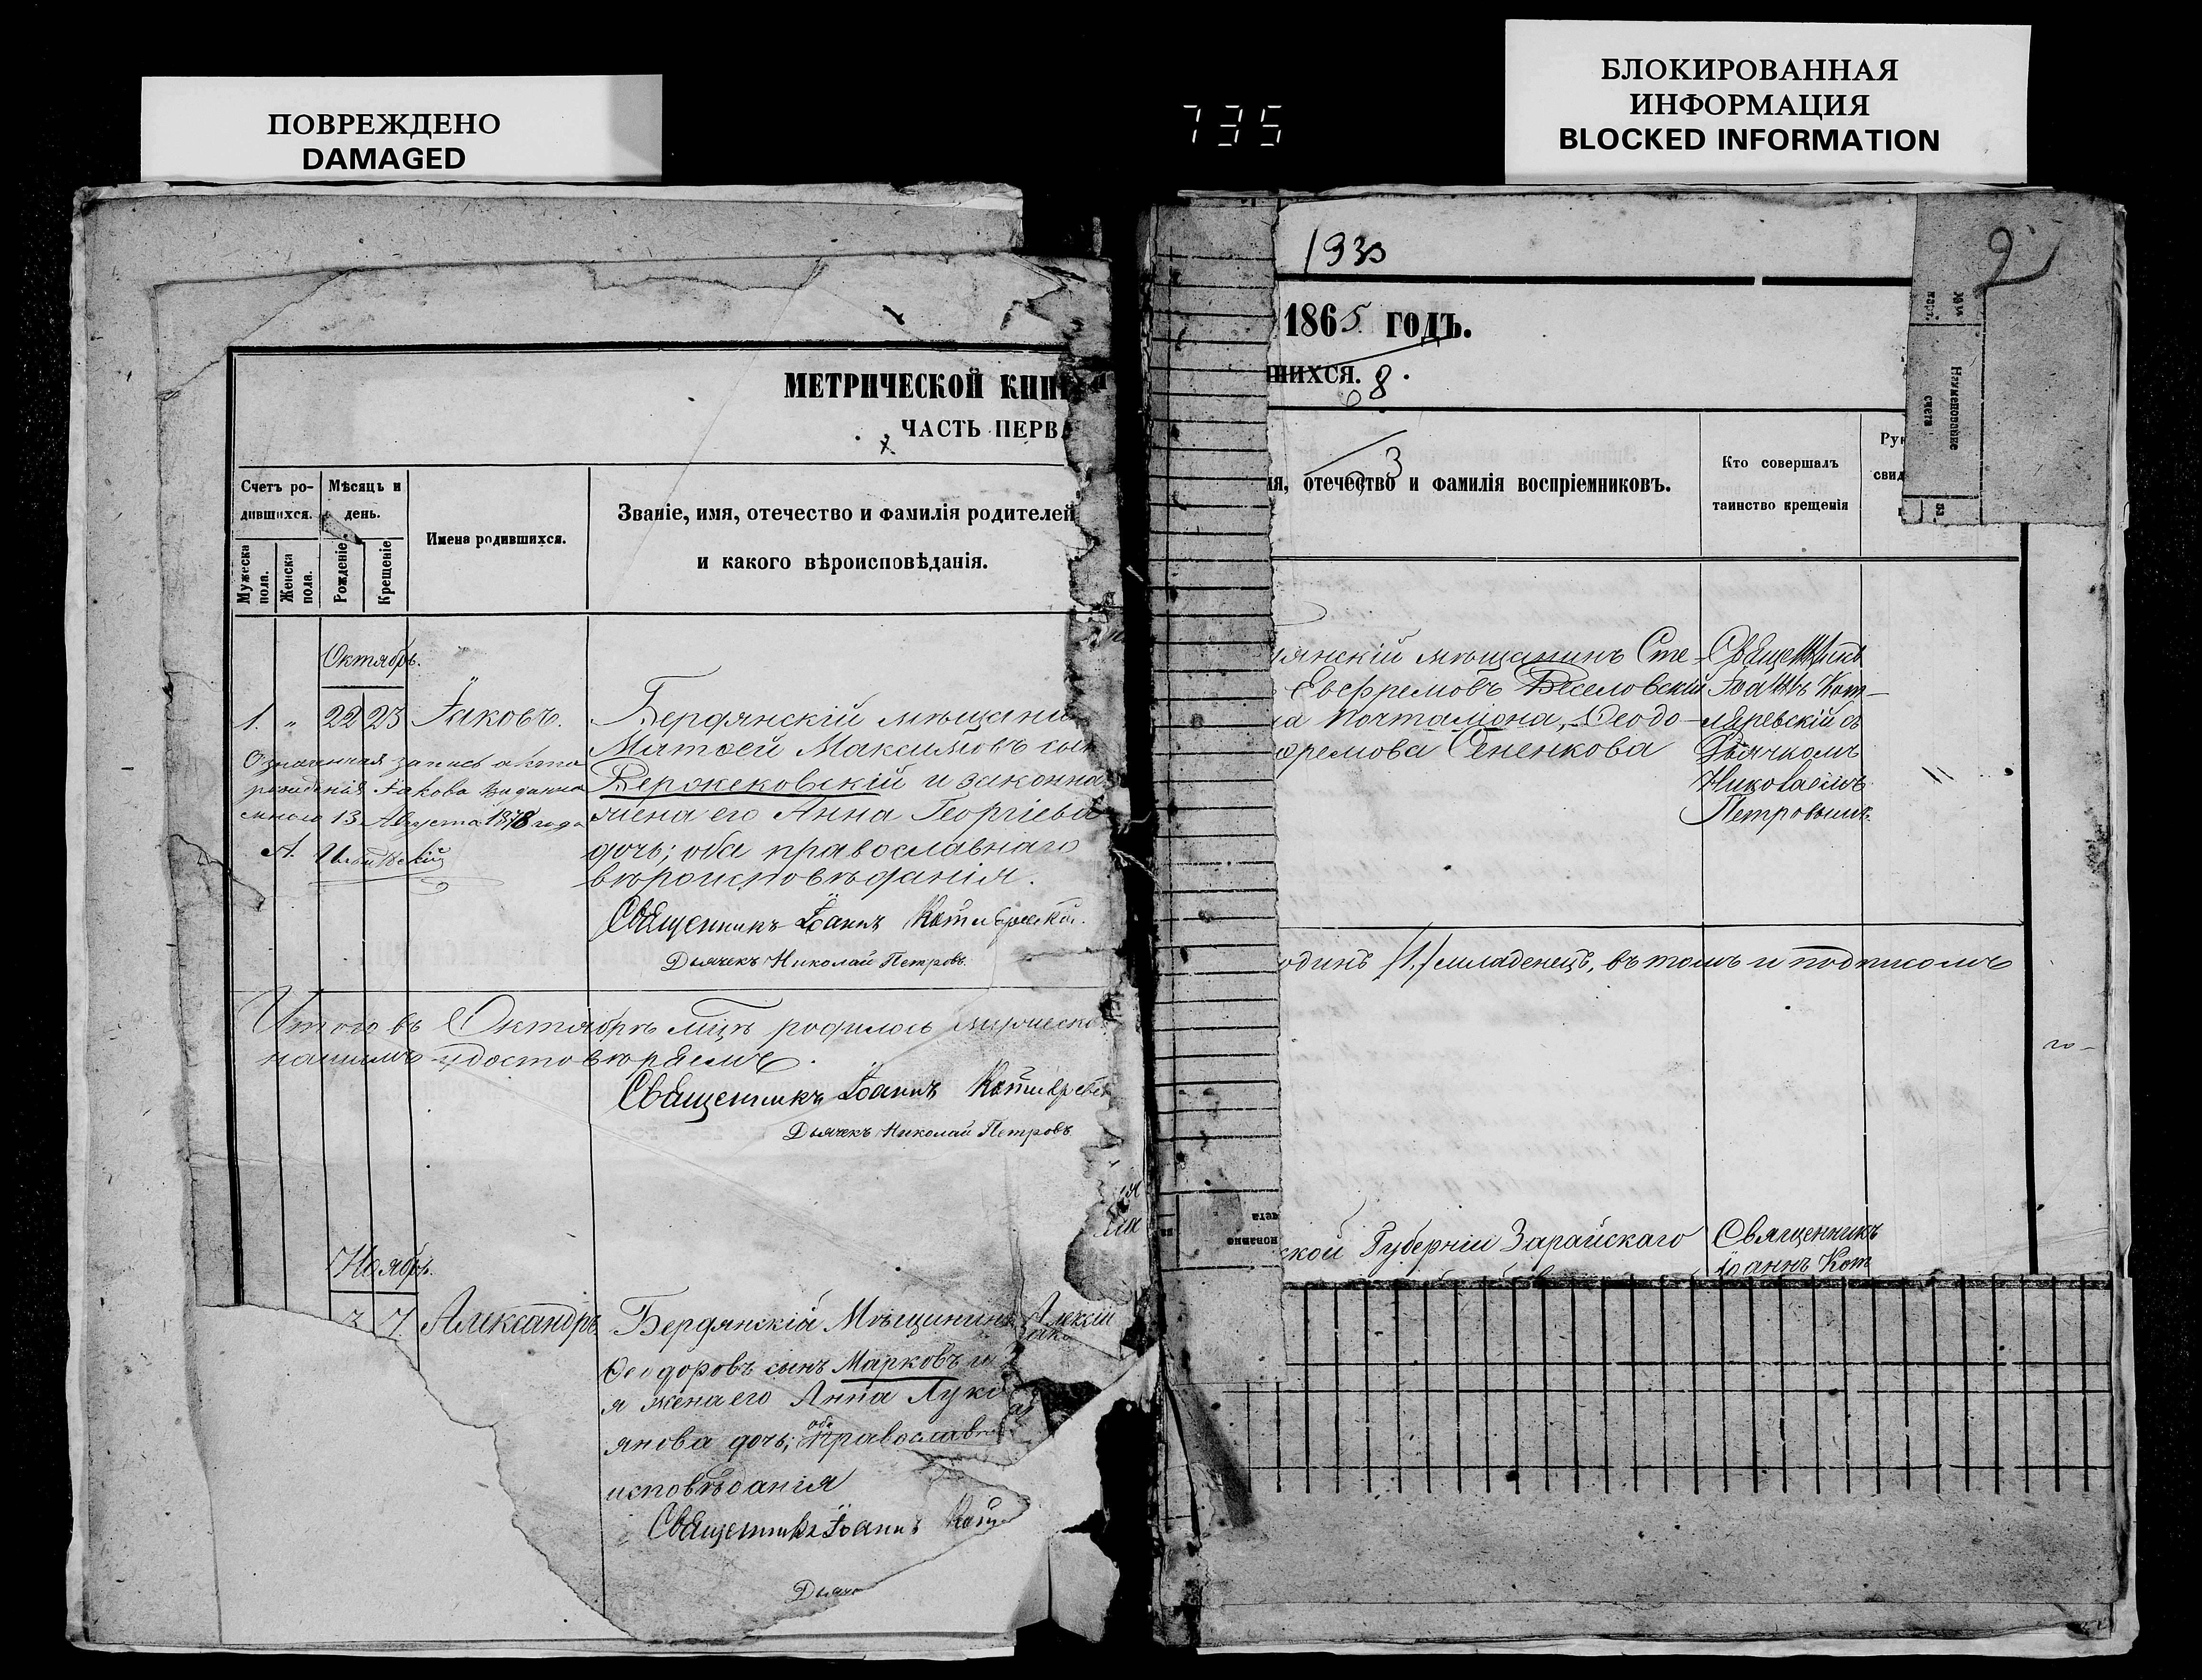 ПОВРЕЖДЕНО
DAMAGED
735
БЛОКИРОВАННАЯ
ИНФОРМАЦИЯ
BLOCKED INFORMATION
МЕТРИЧЕСКОЙ КНИ
ЧАСТЬ ПЕРВА
Счетъ ро-
дившихся.
Мужеска пола.
Женска пола.
Мѣсяцъ и
день.
Рожденіе.
Крещеніе.
Имена родившихся.
Званіе, имя, отечество и фамилія родителей
и какого вѣроисповѣданія.
Октябрь.
1. „ 22 23 Іаковъ.
Бердянскій мѣщани
Матѳей Максимовъ сын
Вержековскій и законна
жена его Анна Георгіева
дочь; оба православнаго
вѣроисповѣданія.
Священникъ Іоаннъ Котляревскій.
Дьячекъ Николай Петровъ.
Означенная запись
рожденія Іакова выдана
мною 13 Августа 1878 года
А.
Итого въ Октябрѣ м͠цѣ родилось мужеска
нашимъ удостовѣряемъ.
Священникъ Іоаннъ Котляревск
Дьячекъ Николай Петровъ.
Ноябрь.
7. Александръ
Бердянскій Мѣщанинъ Алексій
Ѳеодоровъ сынъ Марковъ и
я жена его Анна Лукі
янова дочь; оба православн
исповѣданія
Священникъ Іоаннъ Котл
Дьяче
1930
1865 ГОДЪ.
ШИХСЯ. 8.
3
я, отечество и фамилія воспріемниковъ.
Кто совершалъ
таинство крещенія
Рук
свид
2
Наименованіе
счета
янскій мѣщанинъ Сте-
Евфремовъ Веселовскій
а почталіона, Ѳеодо-
фремова Сененкова
Священникъ
Іоаннъ Кот-
ляревскій съ
Дьячкомъ
Николаемъ
Петровымъ.
одинъ /1./ младенецъ, въ томъ и подписомъ
го-
ской Губерніи Зарайскаго
Священникъ
Іоаннъ Кот